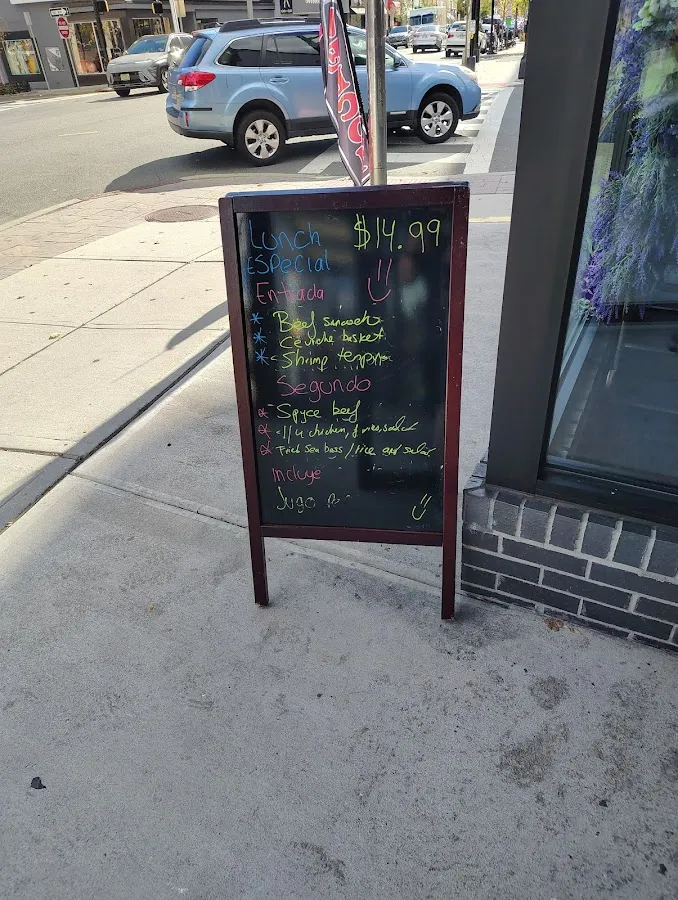 Lunch $14.99
ESPecial
Entrada
* Beef
* Ceviche basket
* Shrimp
Segundo
* Spyce beef
* 1/4 chicken, fries, salad
* Fried Sea bass / rice and salad
Incluye
Jugo